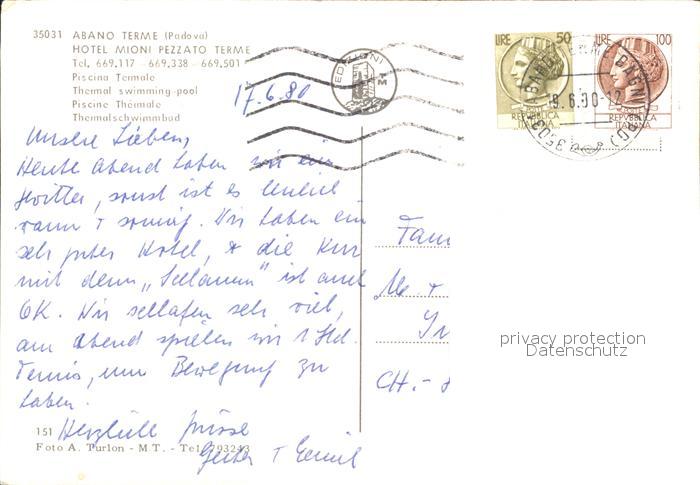 35031 ABANO TERME (Padova)
HOTEL MIONI PEZZATO TERME
Tel. 669.117 - 669.338 - 669.501
Piscina Termale
Thermal swimming-pool
Piscine Thèrmale
Thermalschwimmbad
EDMIONI
T M
LIRE 50
REPVBBLICA
ITALIANA
LIRE 100
REPVBBLICA
ITALIANA
17.6.80
Unsere Lieben,
Heute Abend haben wir ein
Gewitter, sonst ist es
warm + sonnig. Wir haben ein
sehr gutes Hotel, + die Kur
mit dem „Schlamm" ist auch
OK. Wir schlafen sehr viel,
am Abend spielen wir 1 Std.
Tennis, um Bewegung zu
haben.
Herzliche Grüsse
+
Fam
CH.-
151
Foto A. Turlon - M.T. - Tel. 793243
privacy protection
Datenschutz